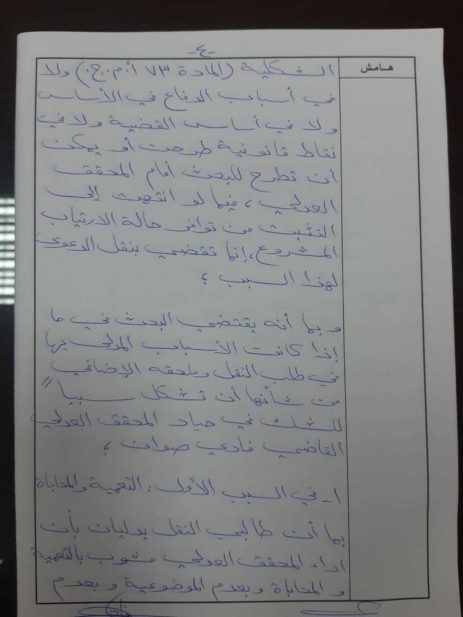 -٤-
هامش
الشكلية (المادة ٧٣ أ.م.ج.) ولا
في أسباب الدفاع في الأساس
ولا في أساس القضية ولا في
نقاط قانونية طرحت أو يمكن
أن تطرح للبحث أمام المحقق
العدلي، فيما لو انتهت إلى
التثبت من توافر حالة الارتياب
المشروع، إنما تقضي بنقل الدعوى
لهذا السبب؛
وبما أنه يقتضي البحث في ما
إذا كانت الأسباب المدلى بها
في طلب النقل وملحقه الإضافي
من شأنها أن تشكل سبباً
للشك في حياد المحقق العدلي
القاضي فادي صوان؛
١- في السبب الأول: التعمية والمحاباة
بما أن طالبي النقل يدليان بأن
أداء المحقق العدلي مشوب بالتعمية
والمحاباة وبعدم الموضوعية وبعدم